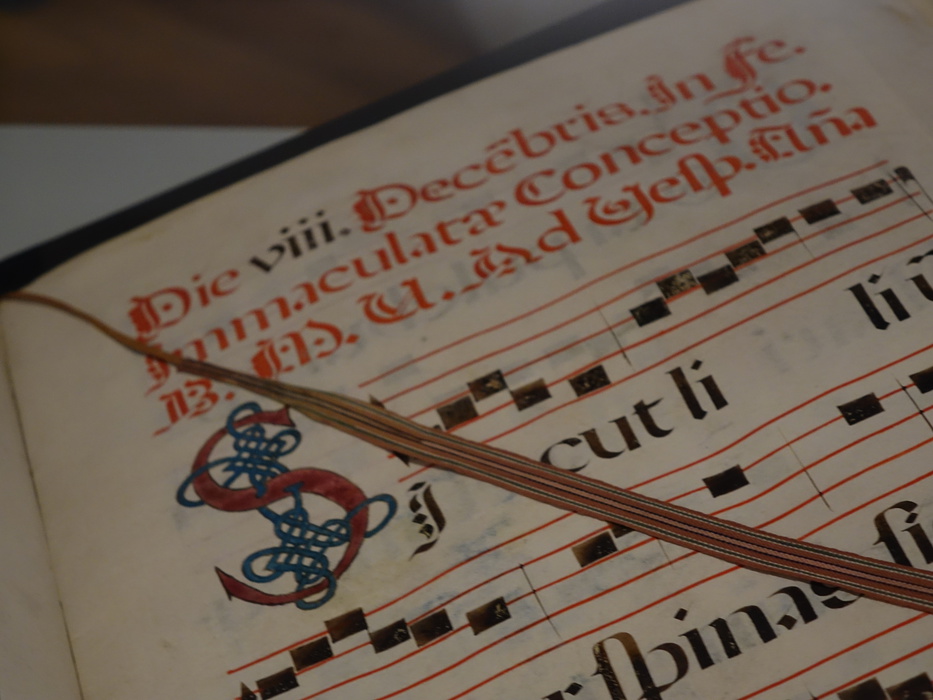 Die viii. Decẽbris. In Fe.
Immaculatæ Conceptio.
B. M. V. Ad Vesp. Añа
SJ cut li li
r spinas si